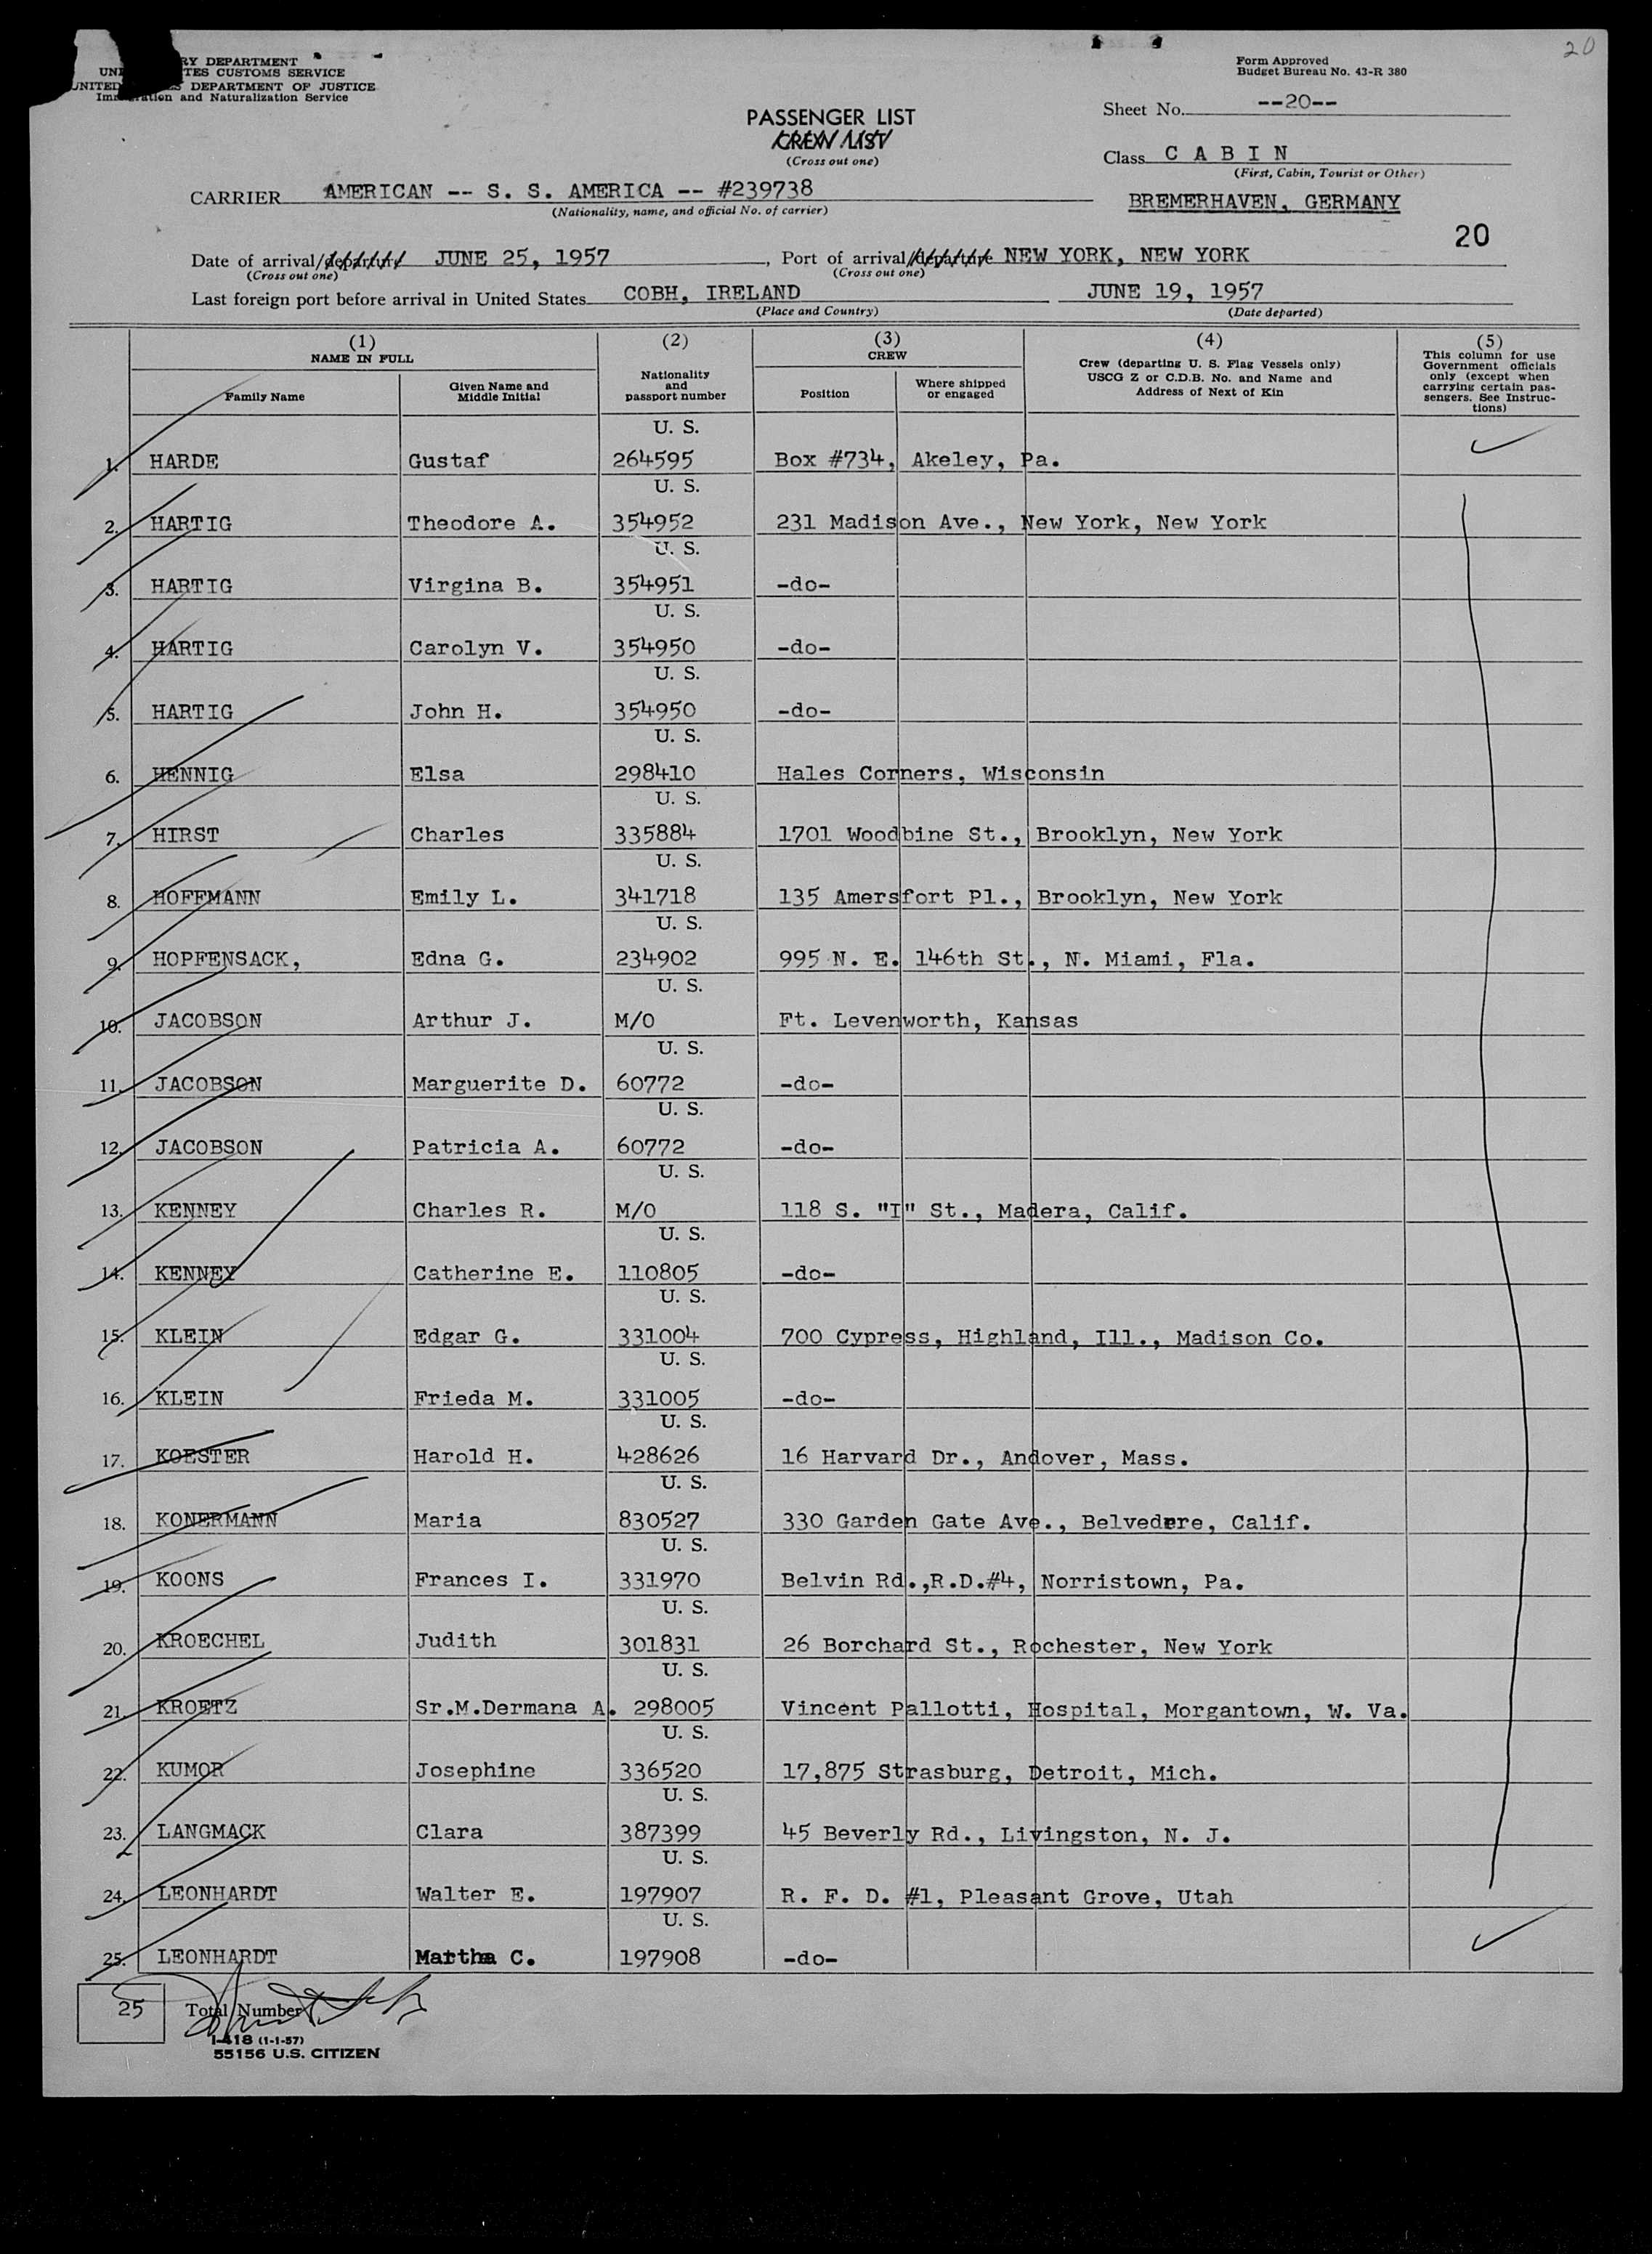 RY DEPARTMENT
UNI TES CUSTOMS SERVICE
UNITED S DEPARTMENT OF JUSTICE
Immigration and Naturalization Service
20
Form Approved
Budget Bureau No. 43-R 380
Sheet No. --20--
PASSENGER LIST
CREW LIST
(Cross out one)
Class C A B I N
(First, Cabin, Tourist or Other)
CARRIER AMERICAN -- S. S. AMERICA -- #239738
(Nationality, name, and official No. of carrier)
BREMERHAVEN, GERMANY
20
Date of arrival/departure JUNE 25, 1957, Port of arrival/departure NEW YORK, NEW YORK
(Cross out one) (Cross out one)
Last foreign port before arrival in United States COBH, IRELAND JUNE 19, 1957
(Place and Country) (Date departed)
(1) NAME IN FULL
Family Name
Given Name and Middle Initial
(2) Nationality and passport number
(3) CREW
Position
Where shipped or engaged
(4) Crew (departing U. S. Flag Vessels only) USCG Z or C.D.B. No. and Name and Address of Next of Kin
(5) This column for use Government officials only (except when carrying certain passengers. See Instructions)
U. S.
1. HARDE Gustaf 264595 Box #734, Akeley, Pa.
U. S.
2. HARTIG Theodore A. 354952 231 Madison Ave., New York, New York
U. S.
3. HARTIG Virgina B. 354951 -do-
U. S.
4. HARTIG Carolyn V. 354950 -do-
U. S.
5. HARTIG John H. 354950 -do-
U. S.
6. HENNIG Elsa 298410 Hales Corners, Wisconsin
U. S.
7. HIRST Charles 335884 1701 Woodbine St., Brooklyn, New York
U. S.
8. HOFFMANN Emily L. 341718 135 Amersfort Pl., Brooklyn, New York
U. S.
9. HOPFENSACK, Edna G. 234902 995 N. E. 146th St., N. Miami, Fla.
U. S.
10. JACOBSON Arthur J. M/O Ft. Levenworth, Kansas
U. S.
11. JACOBSON Marguerite D. 60772 -do-
U. S.
12. JACOBSON Patricia A. 60772 -do-
U. S.
13. KENNEY Charles R. M/O 118 S. "I" St., Madera, Calif.
U. S.
14. KENNEY Catherine E. 110805 -do-
U. S.
15. KLEIN Edgar G. 331004 700 Cypress, Highland, Ill., Madison Co.
U. S.
16. KLEIN Frieda M. 331005 -do-
U. S.
17. KOESTER Harold H. 428626 16 Harvard Dr., Andover, Mass.
U. S.
18. KONERMANN Maria 830527 330 Garden Gate Ave., Belvedere, Calif.
U. S.
19. KOONS Frances I. 331970 Belvin Rd.,R.D.#4, Norristown, Pa.
U. S.
20. KROECHEL Judith 301831 26 Borchard St., Rochester, New York
U. S.
21. KROETZ Sr.M.Dermana A. 298005 Vincent Pallotti, Hospital, Morgantown, W. Va.
U. S.
22. KUMOR Josephine 336520 17,875 Strasburg, Detroit, Mich.
U. S.
23. LANGMACK Clara 387399 45 Beverly Rd., Livingston, N. J.
U. S.
24. LEONHARDT Walter E. 197907 R. F. D. #1, Pleasant Grove, Utah
U. S.
25. LEONHARDT Martha C. 197908 -do-
25 Total Number
I-418 (1-1-57)
55156 U.S. CITIZEN